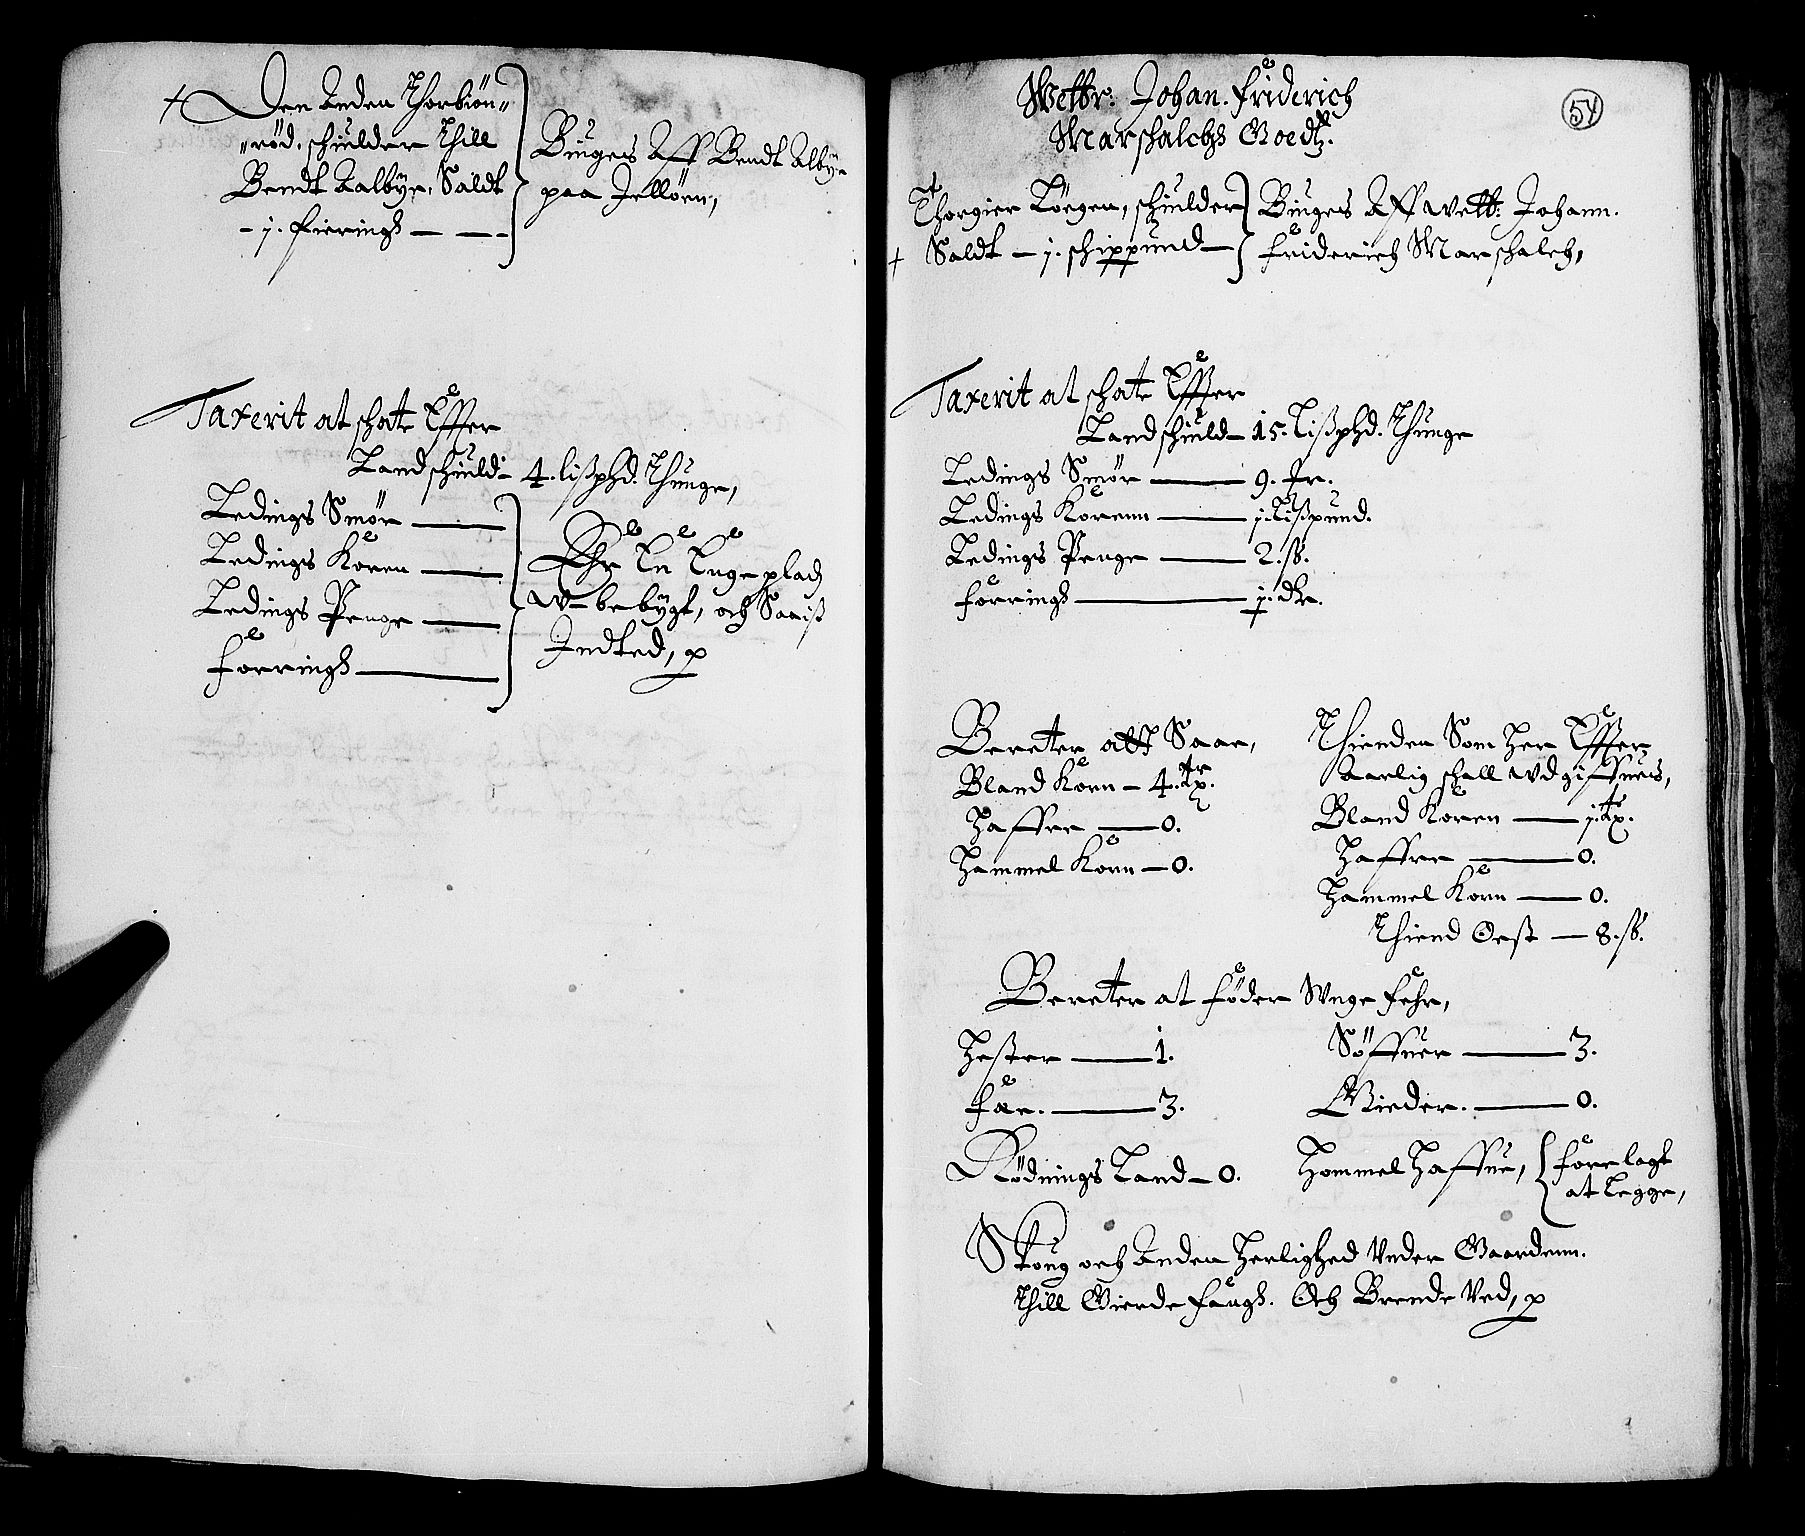 Den Anden Thorbiön„
„röd. schulder Thill
Bendt Aalbye, Saldt
- j. fierings — — -
Bruges Aff Bendt Albye
paa Jelløen,
Taxerit at schate Effter
Landschuld - 4. lißphd. Thunge,
Ledings Smör —
Ledings Koren —
Ledings Penge —
forrings —
Ehr En Enge plads
V-bebygt, och Saaiß
Indted, p
54
Welbr: Johan. friderich
Marschalchs Goedtz.
Thorgier Löegen, schulder
Saldt — j. schippund —
Bruges Aff welb: Johann.
friderich Marschalch,
Taxerit at schate Effter
Landschuld — 15. Lißphd. Thunge
Ledings Smör — 9. Mr.
Ledings Korenn — j. Lißpund.
Ledings Penge — 2. ß.
forrings — j. dr.
Bereter att Saae,
Bland Korn — 4. Tr.
Haffre — 0.
Hammel Korn — 0.
Thienden Som Her Effter
Aarlig schall udgiffues,
Bland Koren — j. Tr.
Haffre — 0.
Hammel Korn — 0.
Thiend Oest — 8. ß.
Bereter at föder Unge fehe,
Hester — 1.
Söffuer — 3.
fäe. — 3.
Gieder. — 0.
Rödnings Land — 0.
Hommel Haffue,
forelagt
at Legge,
Skoug och Anden Herlighed Under Gaardenn.
Thill Gierde fangs. Och Brende Ved, p